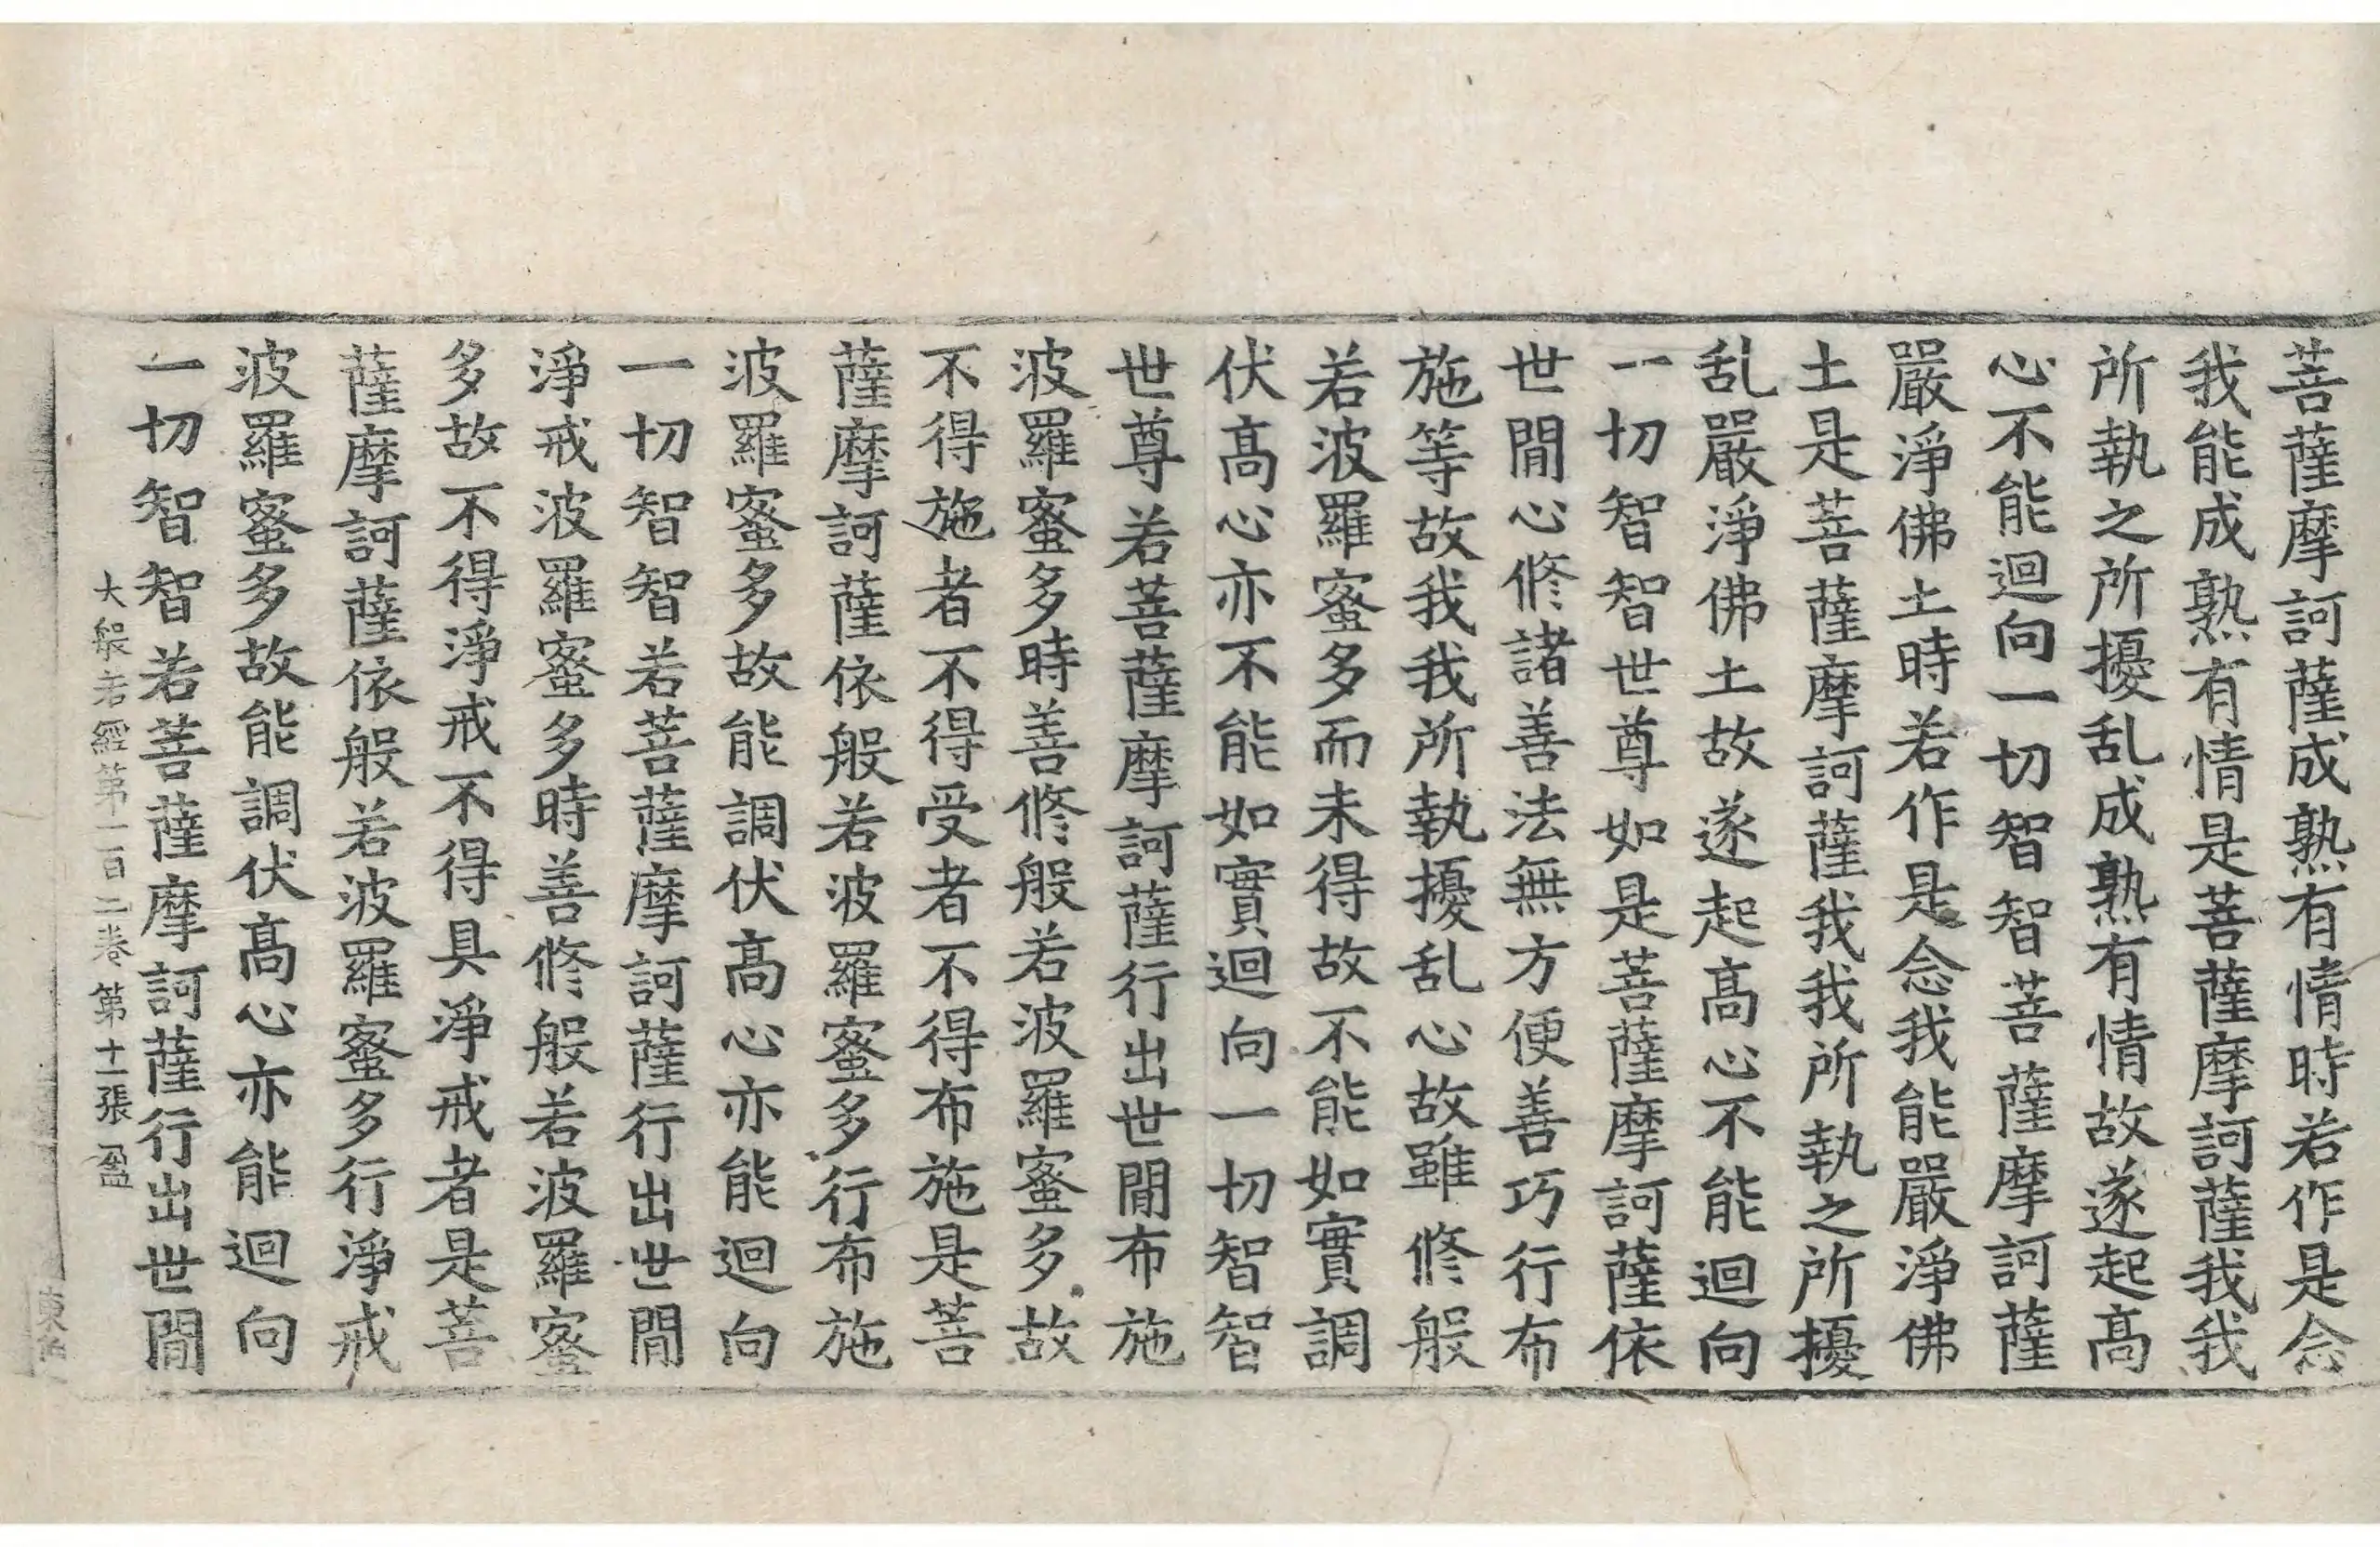 菩薩摩訶薩成熟有情時若作是念
我能成熟有情是菩薩摩訶薩我我
所執之所擾乱成熟有情故遂起髙
心不能迴向一切智智菩薩摩訶薩
嚴淨佛土時若作是念我能嚴淨佛
土是菩薩摩訶薩我我所執之所擾
乱嚴淨佛土故遂起髙心不能迴向
一切智智世尊如是菩薩摩訶薩依
世閒心修諸善法無方便善巧行布
施等故我我所執擾乱心故雖修般
若波羅蜜多而未得故不能如實調
伏髙心亦不能如實迴向一切智智
世尊若菩薩摩訶薩行出世閒布施
波羅蜜多時善修般若波羅蜜多故
不得施者不得受者不得布施是菩
薩摩訶薩依般若波羅蜜多行布施
波羅蜜多故能調伏髙心亦能迴向
一切智智若菩薩摩訶薩行出世閒
淨戒波羅蜜多時善修般若波羅蜜
多故不得淨戒不得具淨戒者是菩
薩摩訶薩依般若波羅蜜多行淨戒
波羅蜜多故能調伏髙心亦能迴向
一切智智若菩薩摩訶薩行出世閒
大般若經第一百二卷 第十一張 盈